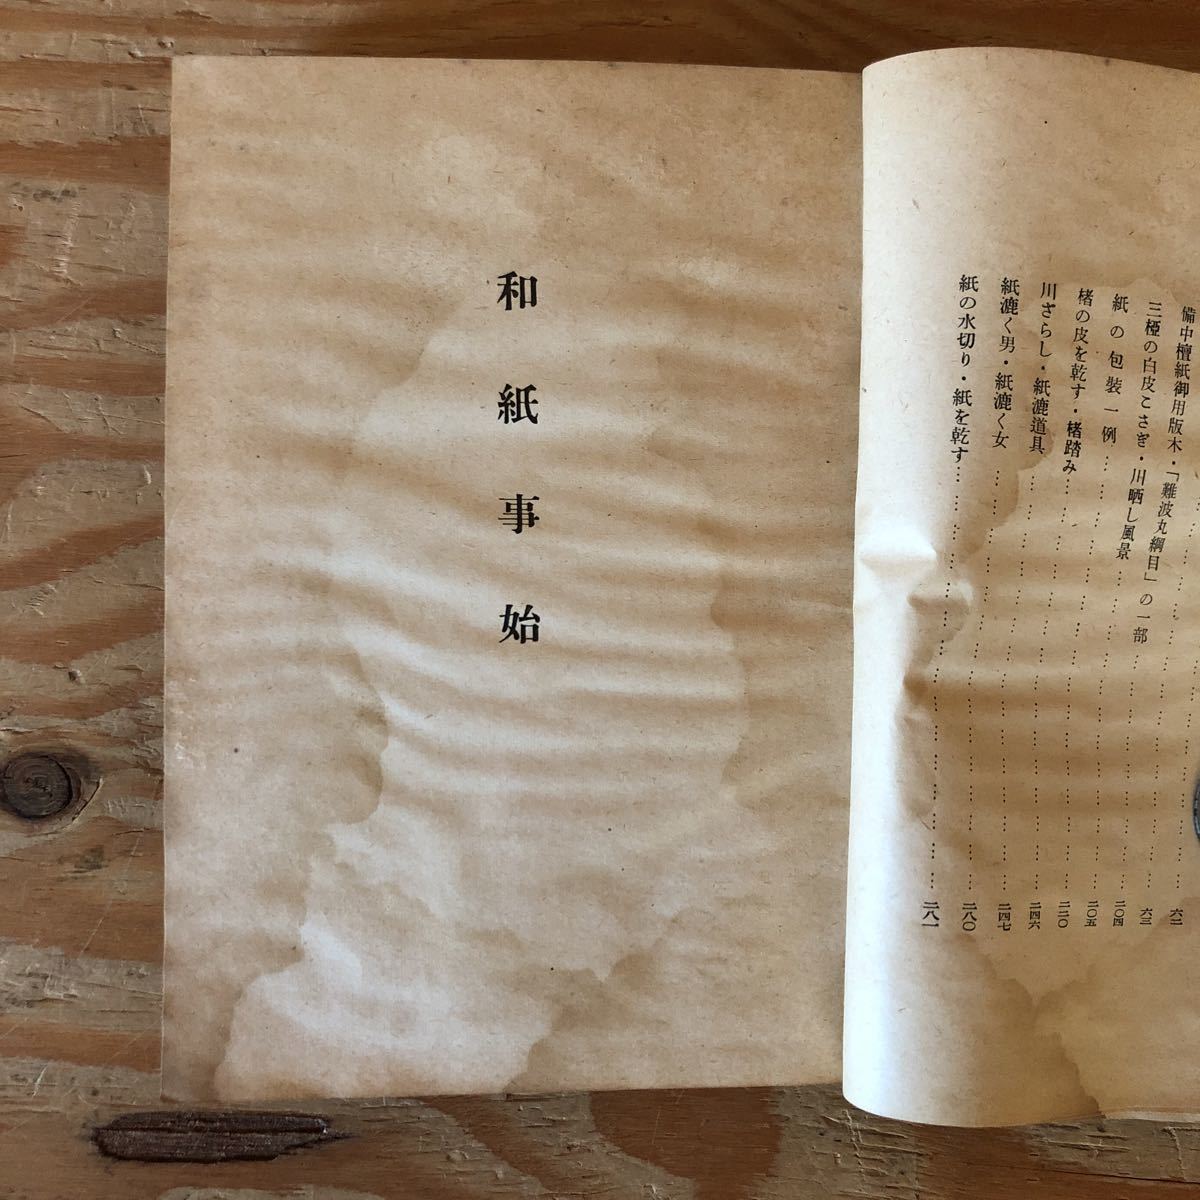 備中檀紙御用版木・「難波丸綱目」の一部……六二
三椏の白皮こさぎ・川晒し風景……六三
紙の包装一例……二〇四
楮の皮を乾す・楮踏み……二〇五
川さらし・紙漉道具……二二〇
紙漉く男・紙漉く女……二四六
紙の水切り・紙を乾す……二八一
和紙事始